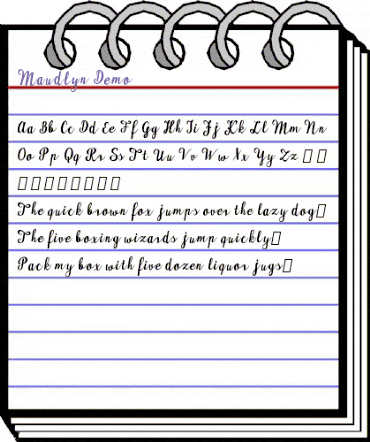 Maudlyn Demo
Aa Bb Cc Dd Ee Ff Gg Hh Ii Jj Kk Ll Mm Nn
Oo Pp Qq Rr Ss Tt Uu Vv Ww Xx Yy Zz □ □
□□□□□□□□
The quick brown fox jumps over the lazy dog□
The five boxing wizards jump quickly□
Pack my box with five dozen liquor jugs□